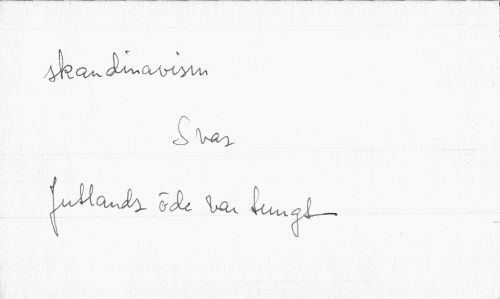 skandinavism
Svar
Jutlands öde var tungt